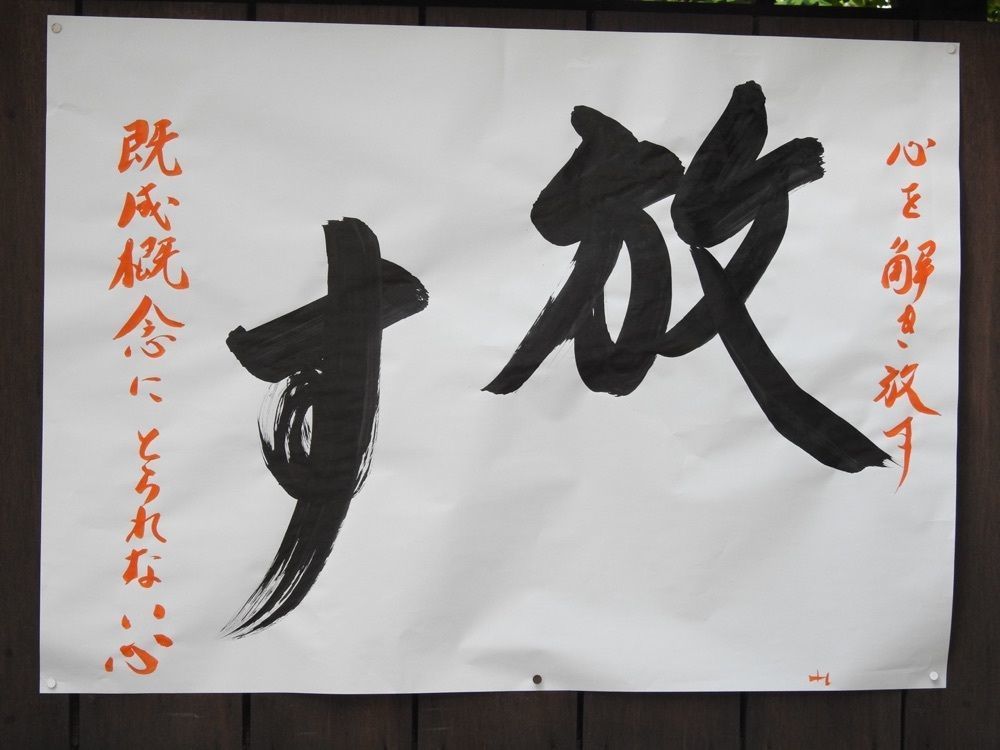 心を解き放す
放す
既成概念にとらわれない心